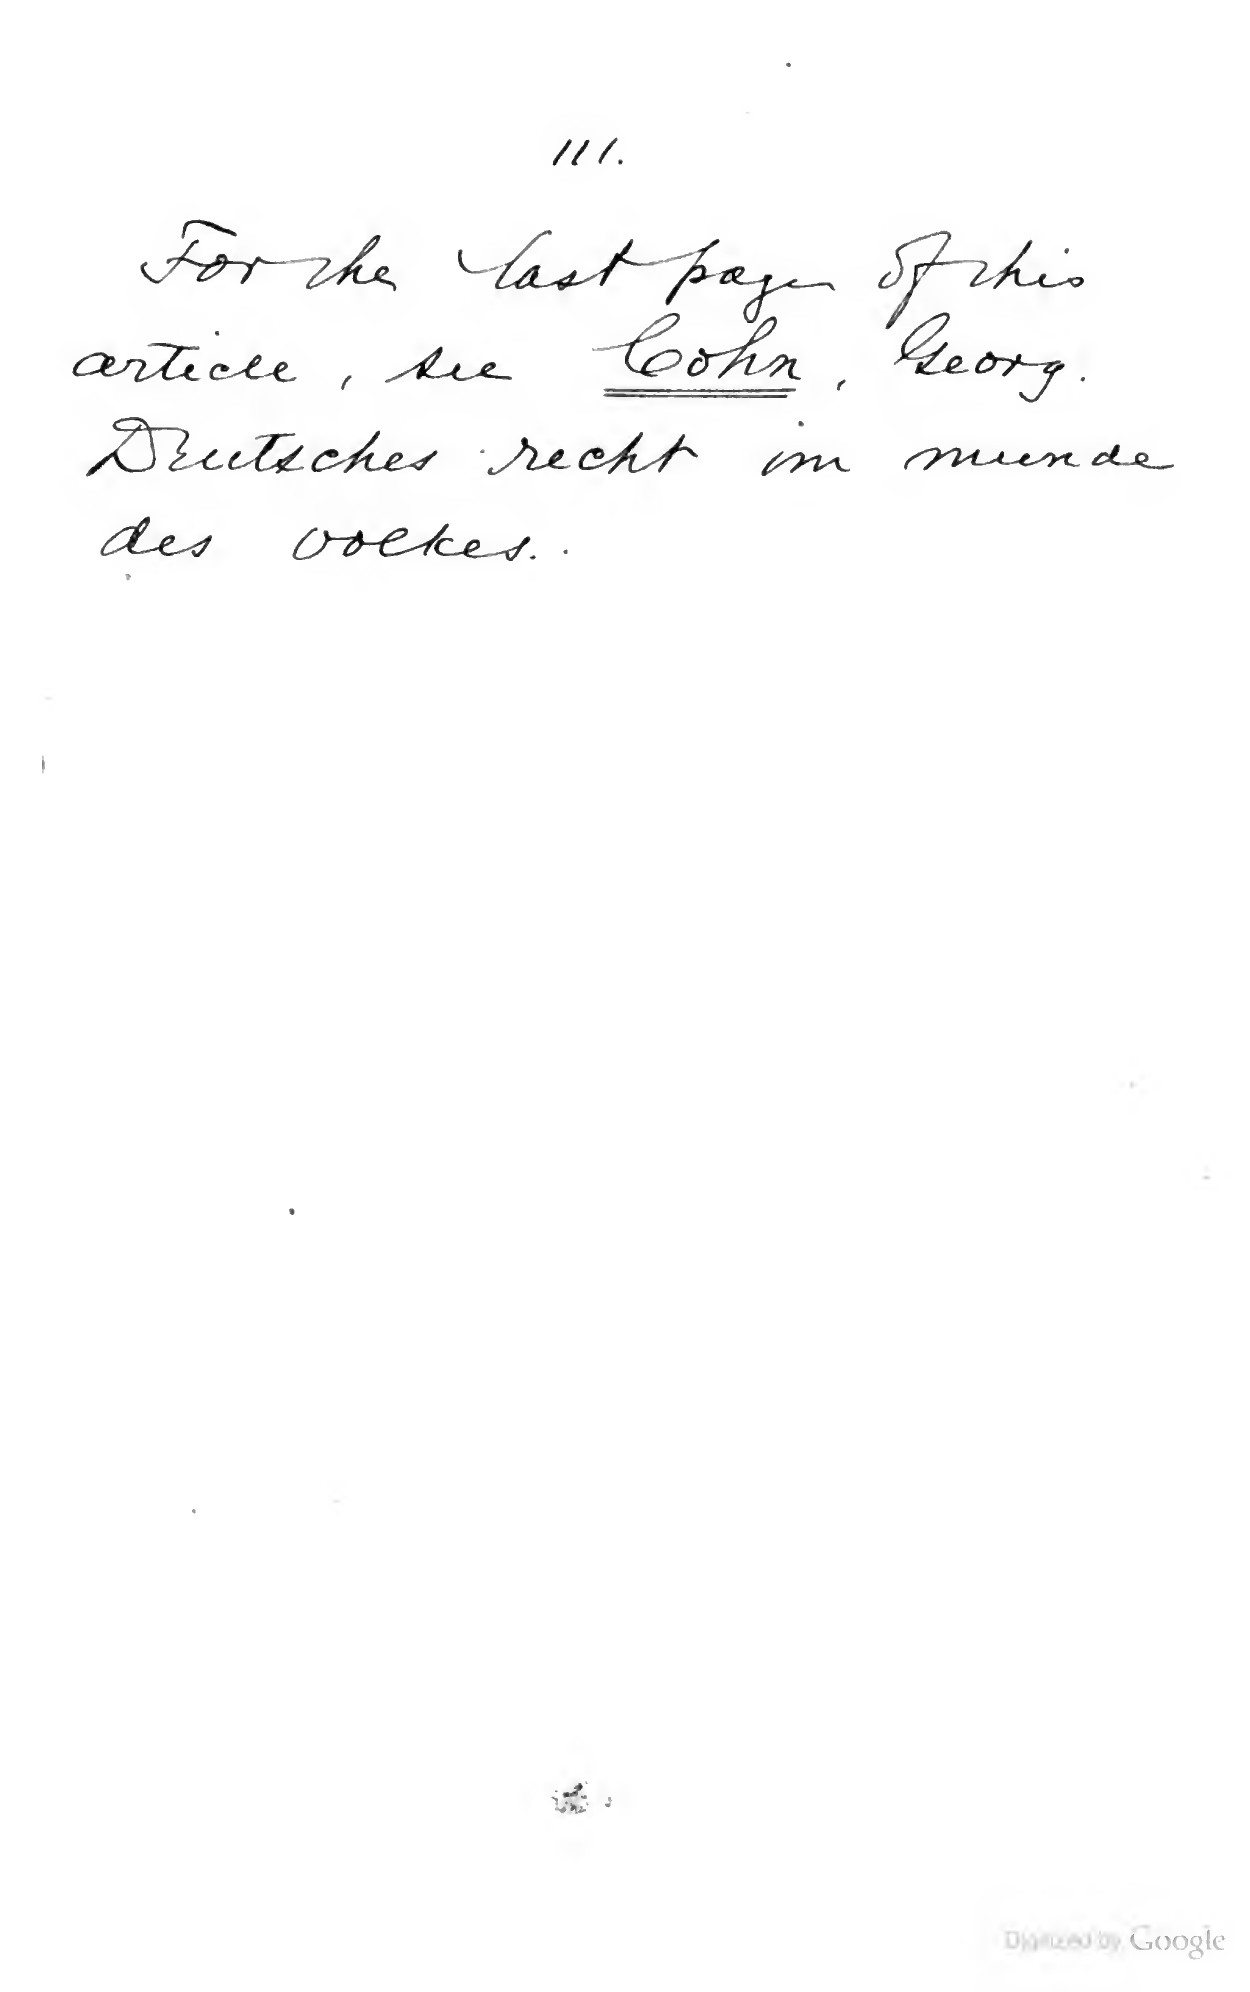 111.
For the last page of this
article, see Cohn, Georg.
Deutsches recht im munde
des volkes.
Digitized by Google